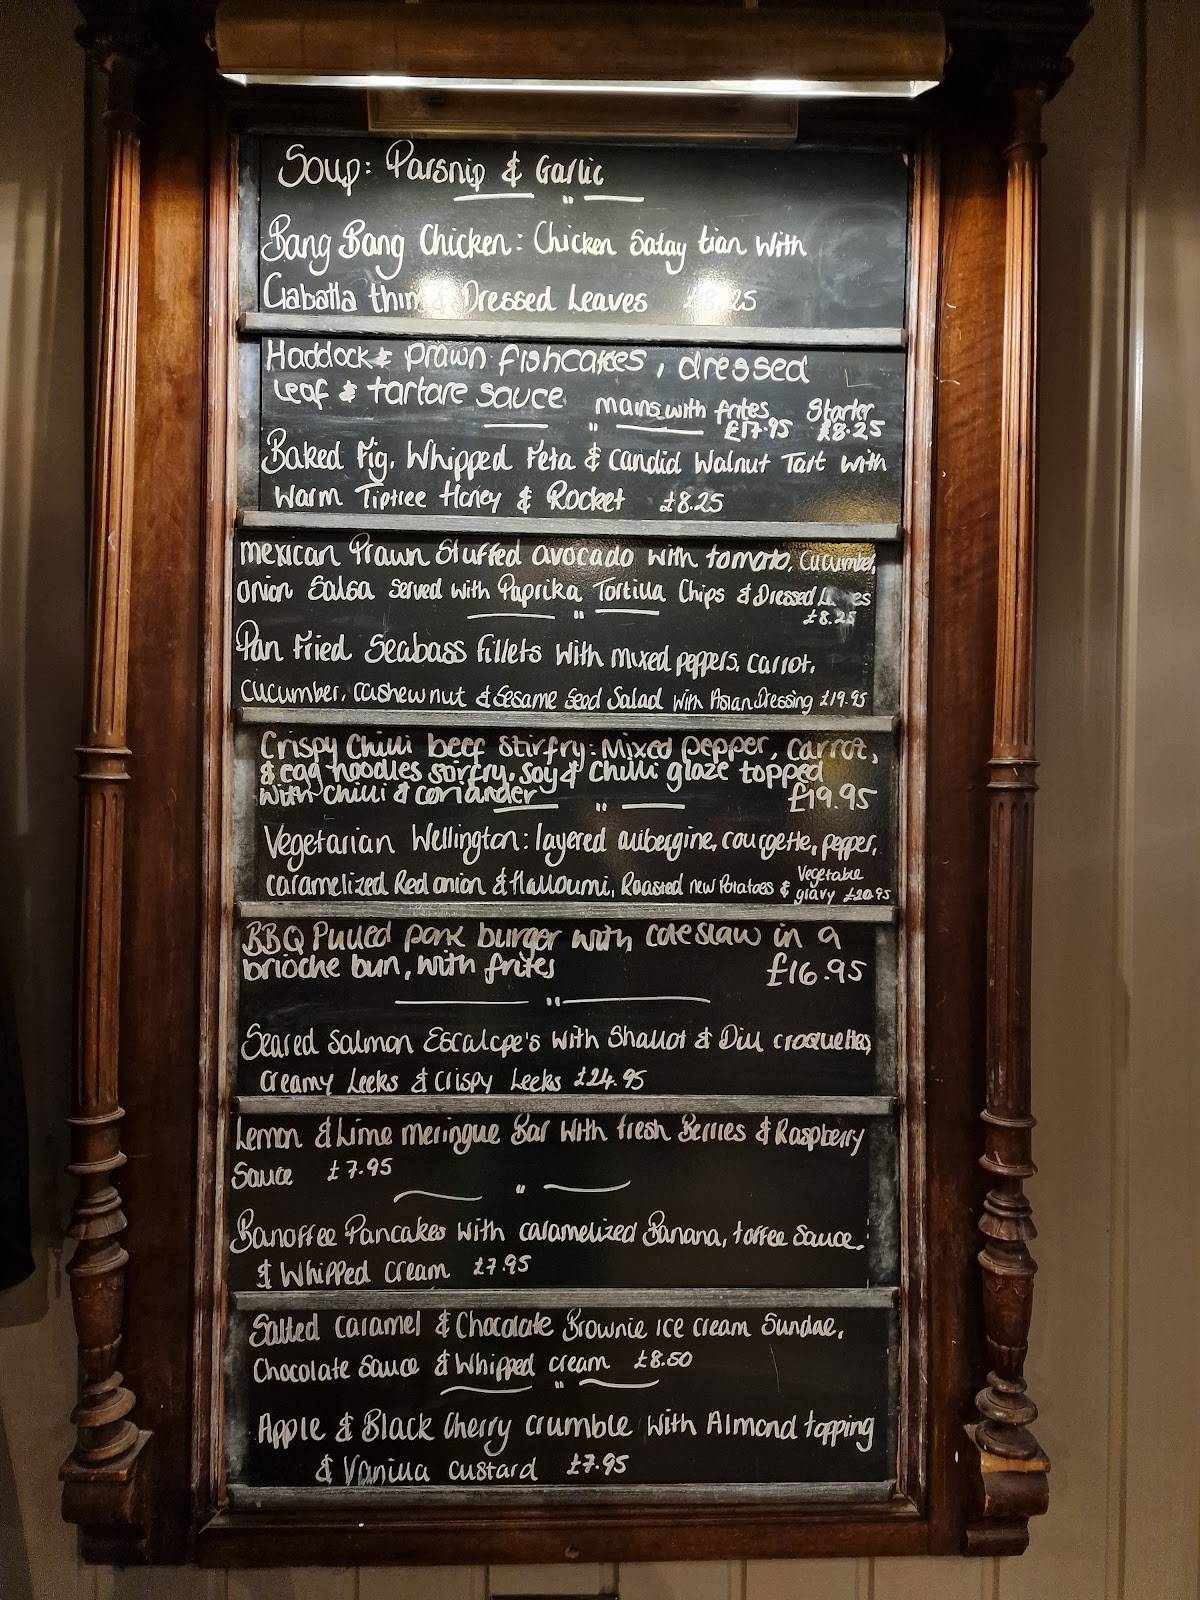 Soup: Parsnip & Garlic
"
Bang Bang Chicken: Chicken Satay tian with
Ciabatta thins & Dressed Leaves £8.25
Haddock & prawn fishcakes, dressed
leaf & tartare sauce
mains with frites Starter
£17.95 £8.25
"
Baked Fig, Whipped Feta & Candid Walnut Tart with
Warm Tiptree Honey & Rocket £8.25
mexican Prawn Stuffed avocado with tomato, cucumber,
onion Salsa Served with Paprika Tortilla Chips & Dressed Leaves
£8.25
"
Pan Fried Seabass fillets with mixed peppers, carrot,
cucumber, cashew nut & Sesame Seed Salad with Asian Dressing £19.95
Crispy Chilli beef Stirfry: Mixed pepper, carrot,
& egg noodles stirfry, soy & chilli glaze topped
with chilli & coriander £19.95
"
Vegetarian Wellington: layered aubergine, courgette, pepper,
caramelized Red onion & Halloumi, Roasted new Potatoes & Vegetable
gravy £20.95
BBQ Pulled pork burger with coleslaw in a
brioche bun, with frites £16.95
"
Seared Salmon Escalope's with Shallot & Dill croquettes,
Creamy Leeks & Crispy Leeks £24.95
Lemon & Lime meringue Bar with fresh Berries & Raspberry
Sauce £7.95
"
Banoffee Pancakes with caramelized Banana, toffee Sauce,
& Whipped Cream £7.95
Salted Caramel & Chocolate Brownie ice cream Sundae,
Chocolate Sauce & Whipped cream £8.50
"
Apple & Black Cherry crumble with Almond topping
& Vanilla custard £7.95